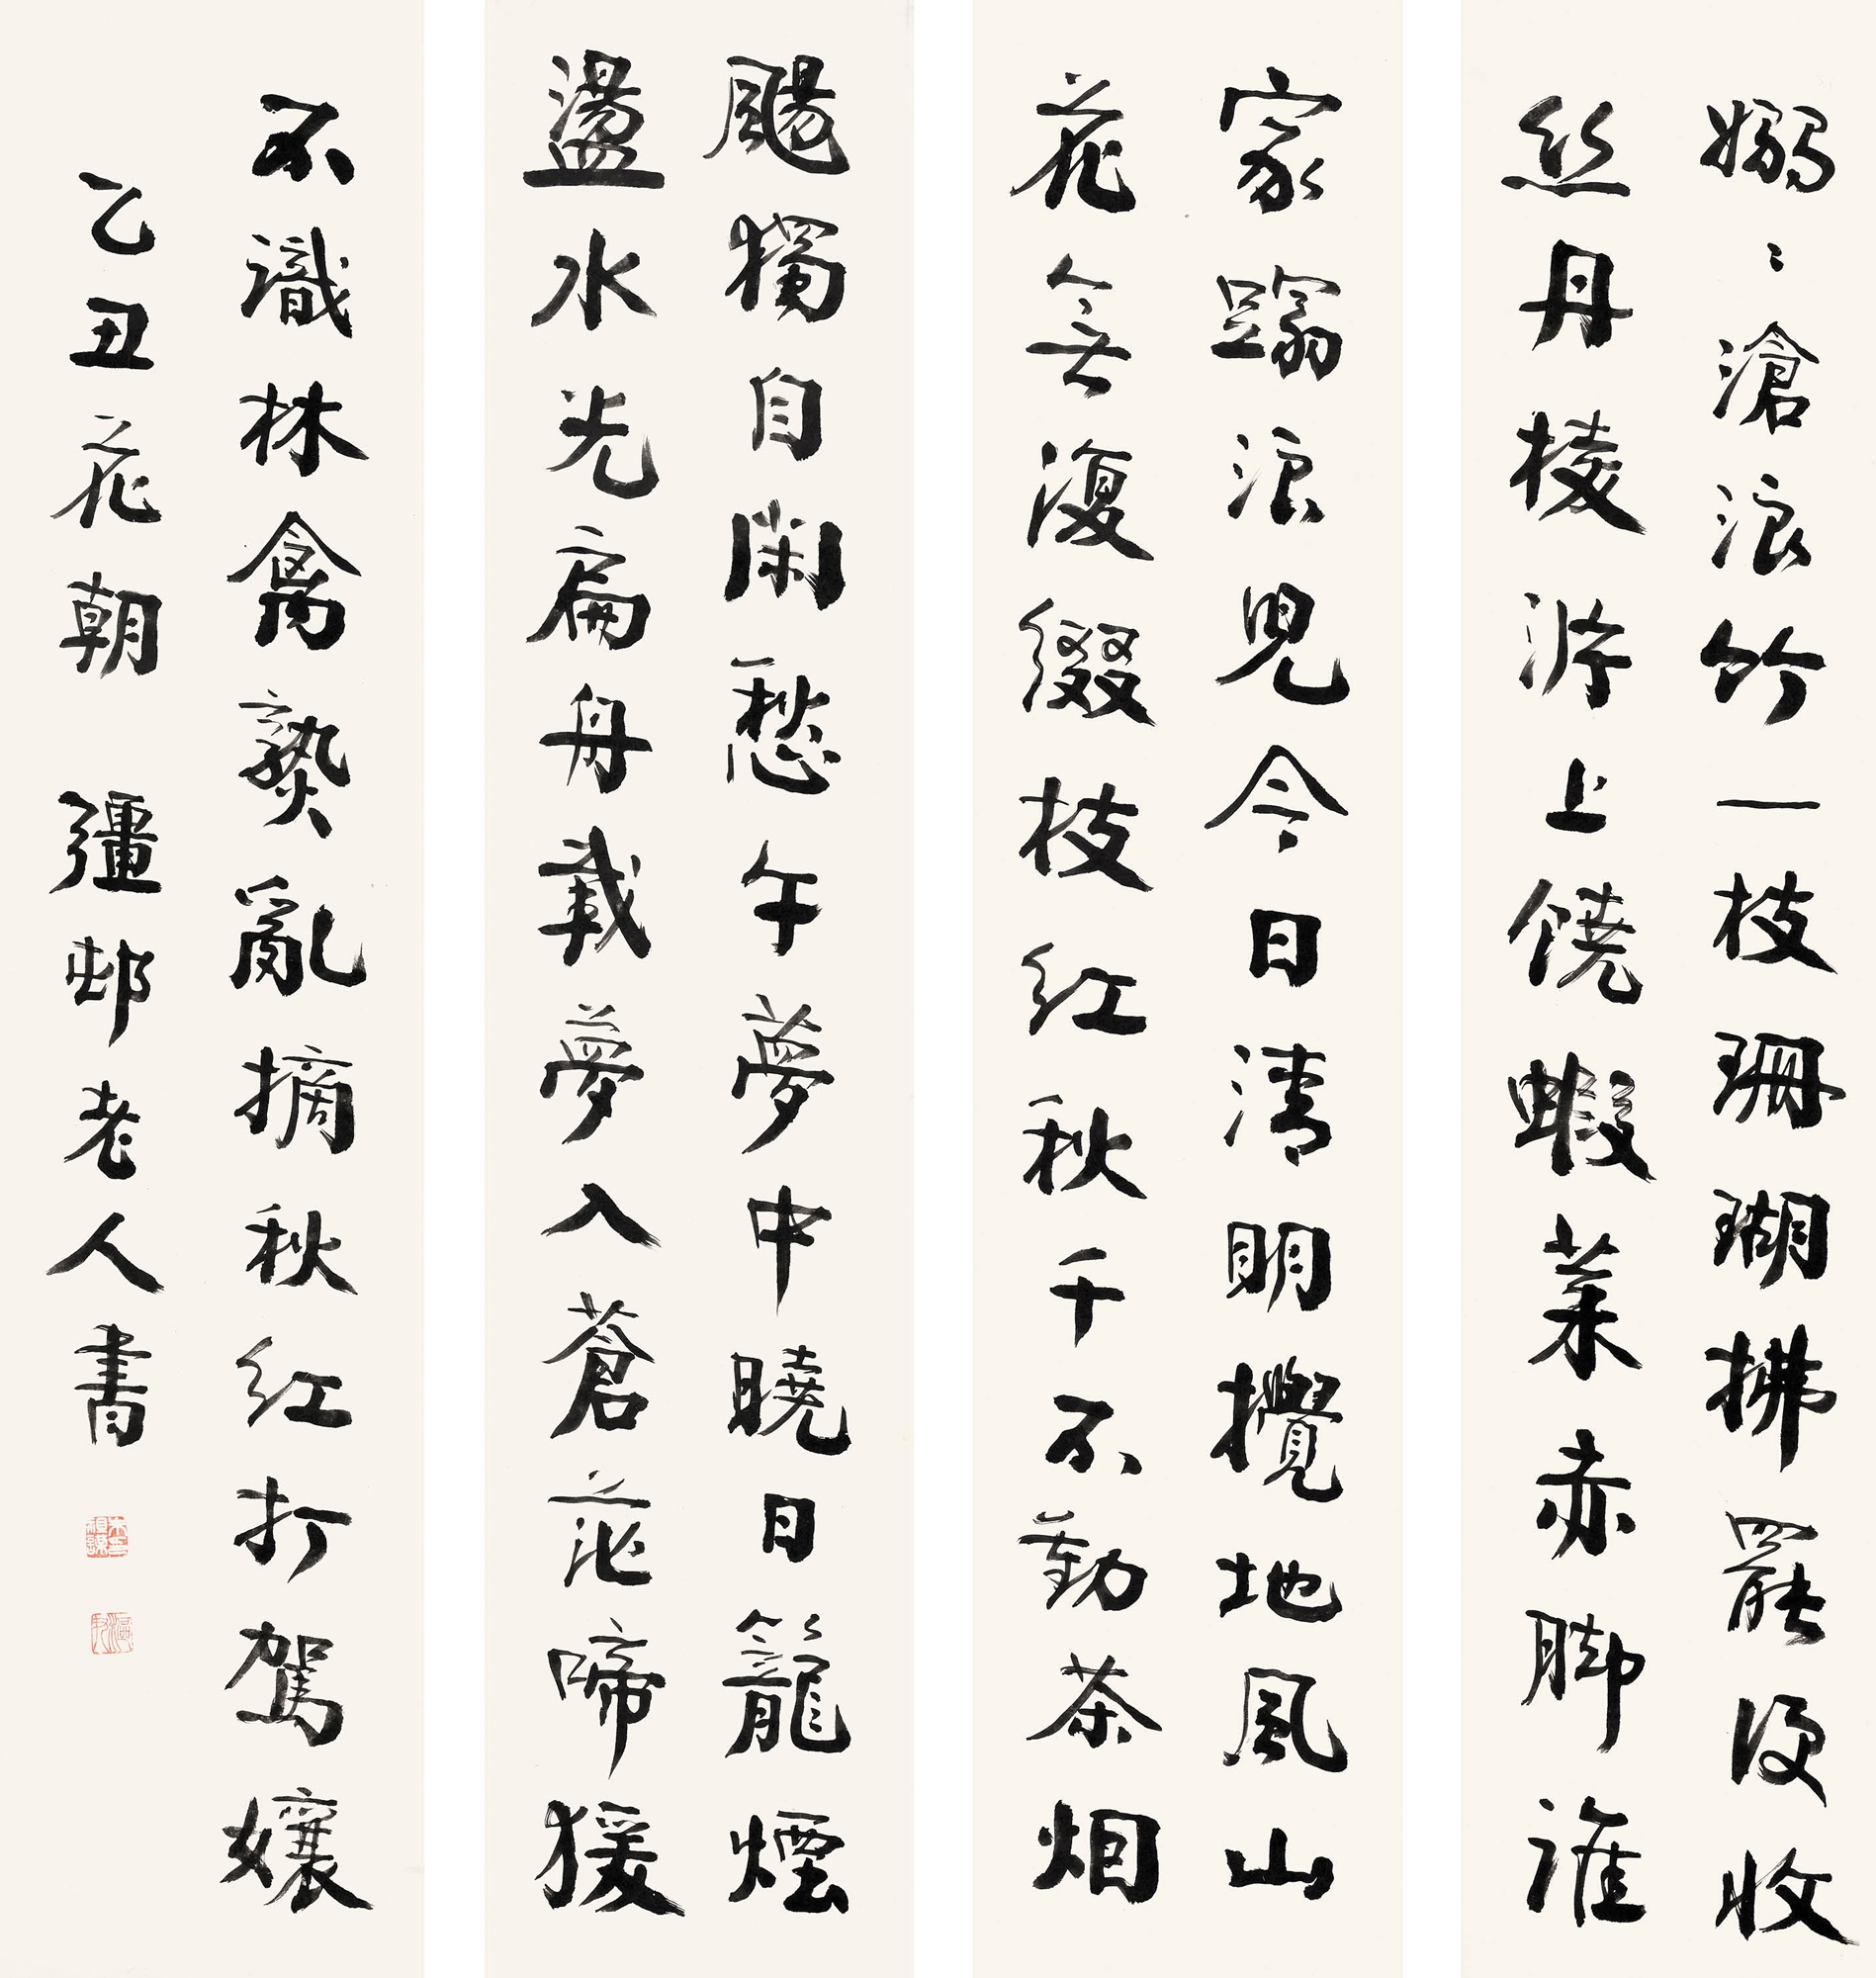 嫋〻滄浪竹一枝珊瑚拂罷没收
丝丹棱湃上饒蝦菜赤脚誰
家蹋浪兒今日清明攪地風山
花無復綴枝紅秋千不動茶烟
颺獨自閑愁午夢中曉日籠煙
盪水光扁舟載夢入蒼茫啼猨
不識林禽爇亂摘秋紅打駕孃
乙丑花朝 彊邨老人書